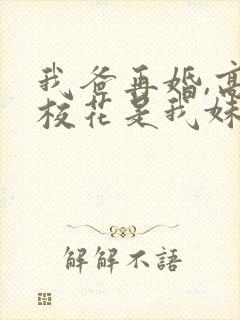 我爸再婚,高
校花是我妹
解解不語